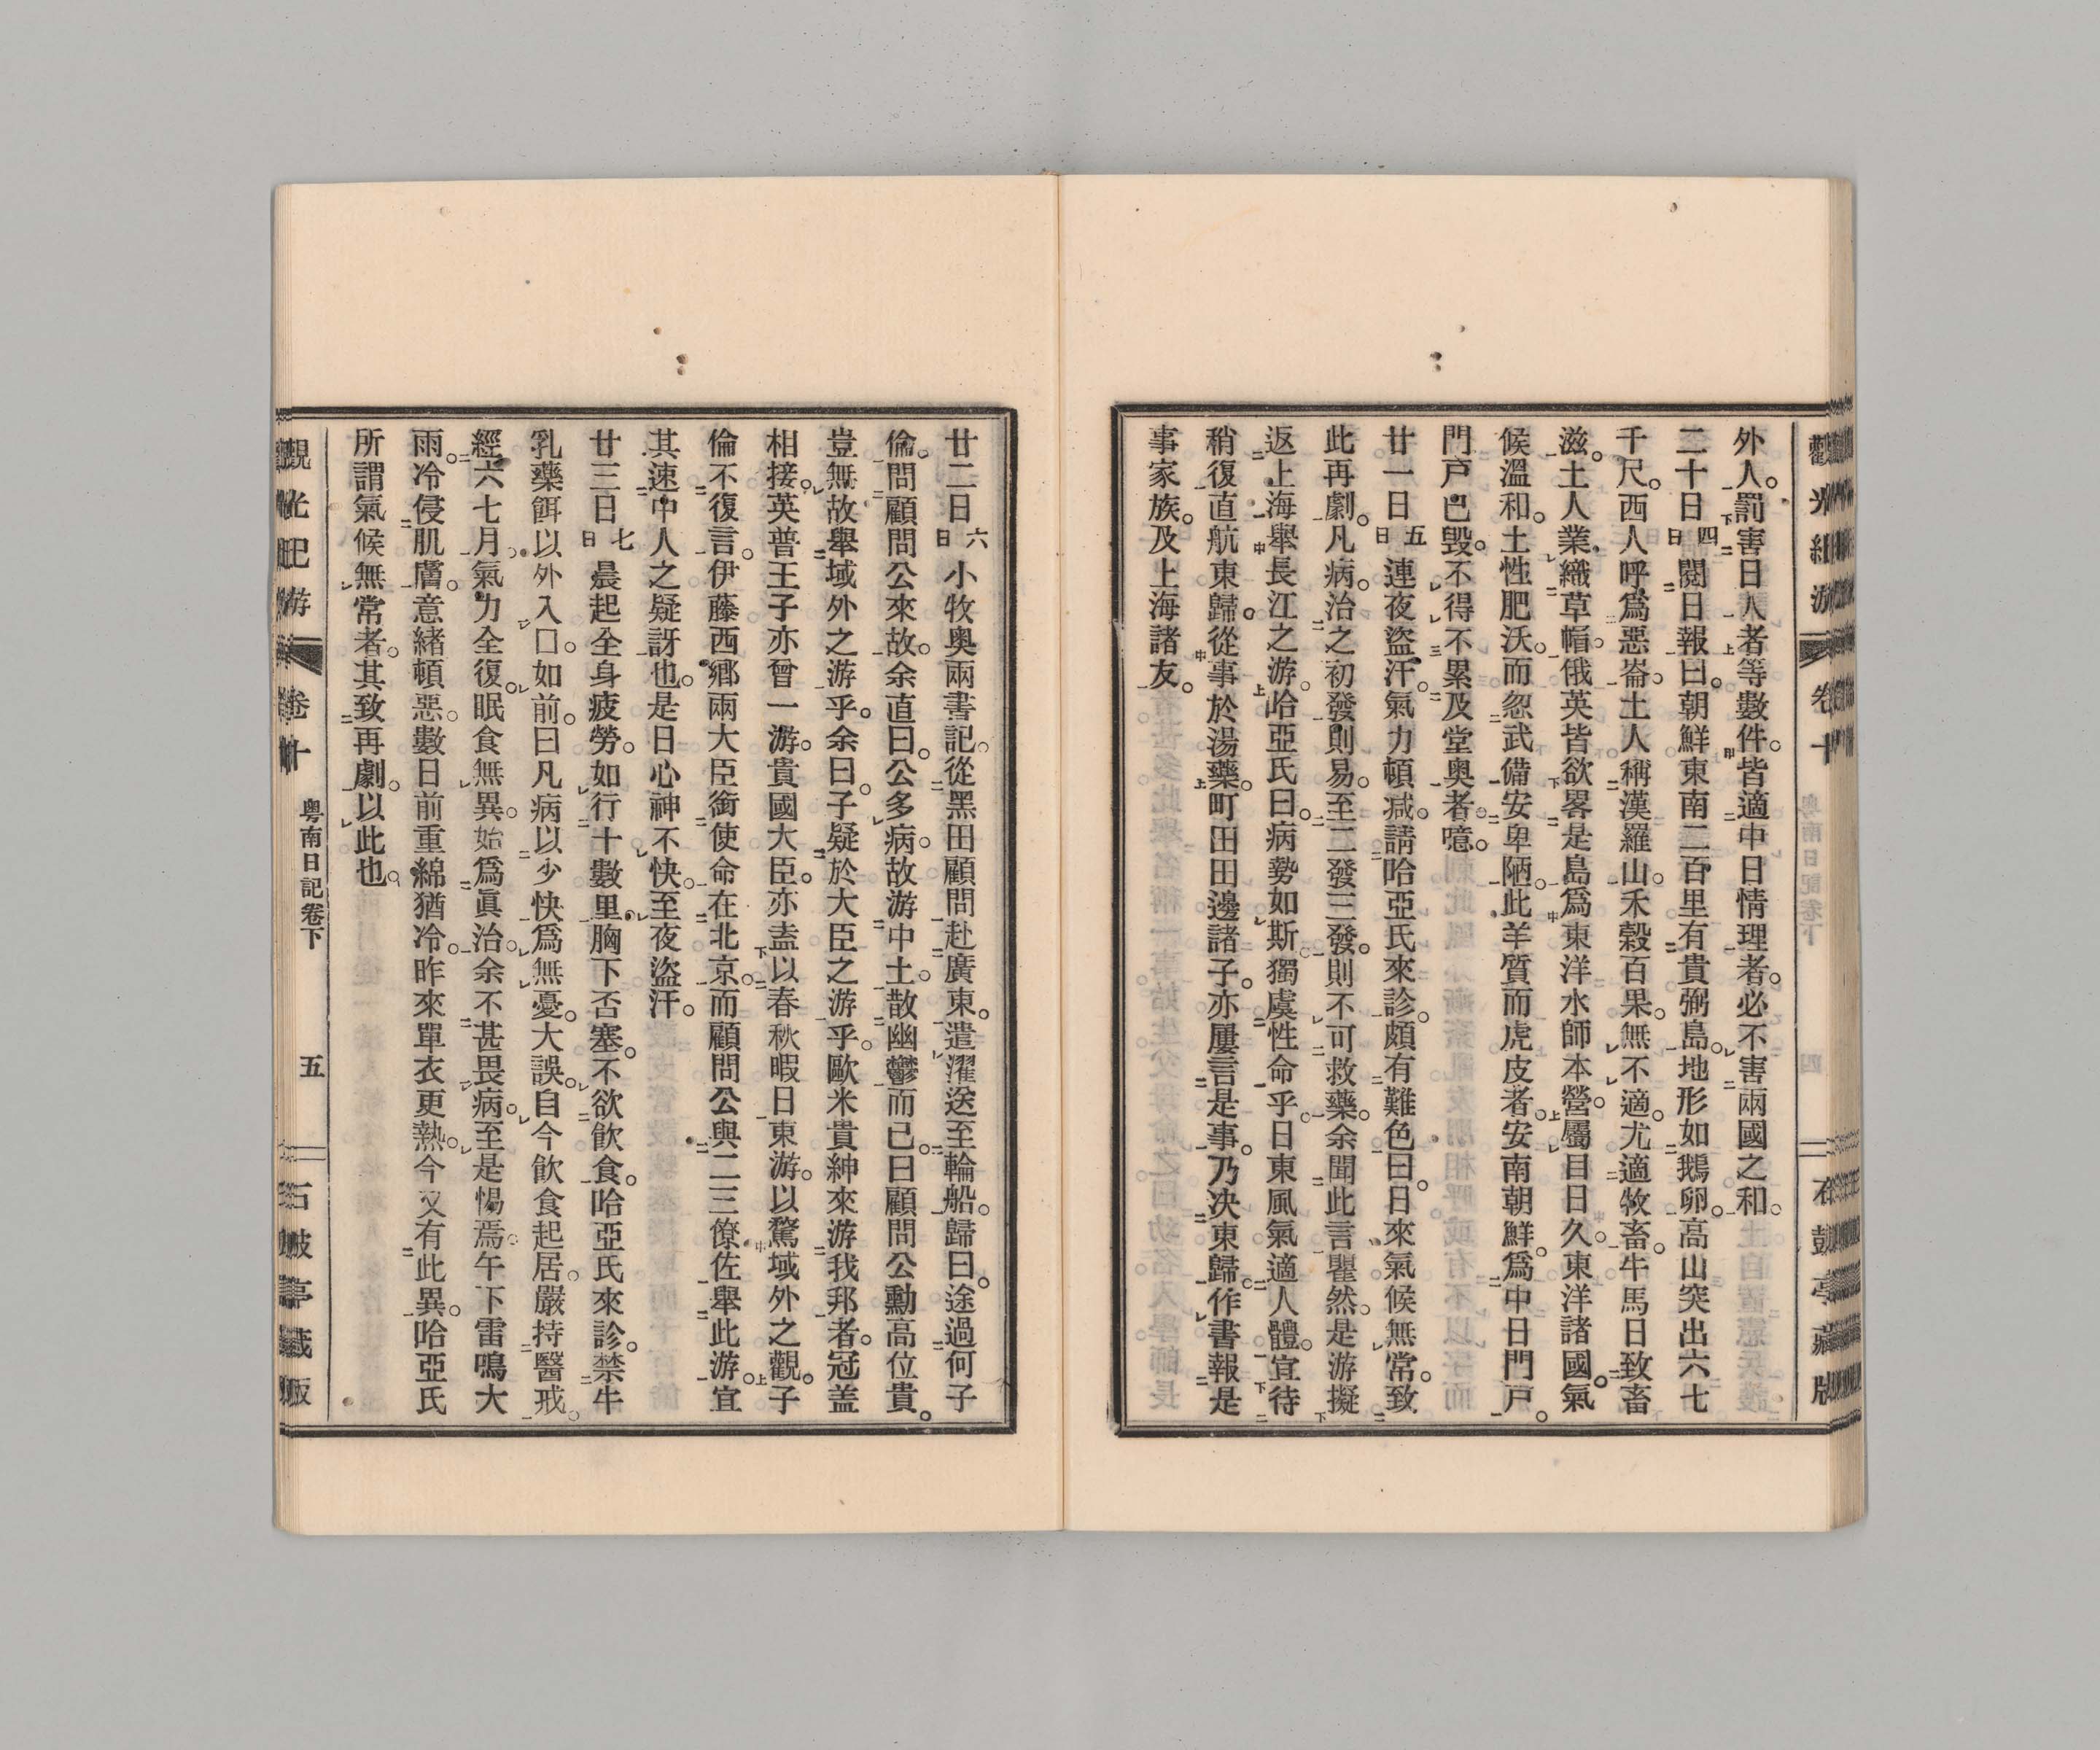 外人。罰害日人者等數件。皆適中日情理者。必不害兩國之和。
二十日四日閱日報曰。朝鮮東南二百里有貴弼島。地形如鵝卵。高山突出六七
千尺。西人呼爲惡崙。土人稱漢羅山。禾穀百果。無不適。尤適牧畜。牛馬日致畜
滋。土人業織草帽。俄英皆欲畧是島爲東洋水師本營。屬目日久。東洋諸國。氣
候溫和。土性肥沃。而忽武備安卑陋。此羊質而虎皮者。安南朝鮮。爲中日門戶。
門戶已毀。不得不累及堂奥者。噫。
廿一日五日連夜盜汗。氣力頓減。請哈亞氏來診。頗有難色曰。日來氣候無常。致
此再劇。凡病。治之初發則易。至二發三發。則不可救藥。余聞此言瞿然。是游擬
返上海擧長江之游。哈亞氏曰。病勢如斯。獨虞性命乎。日東風氣適人體。宜待
稍復直航東歸。從事於湯藥。町田田邊諸子。亦屢言是事。乃决東歸。作書報是
事家族。及上海諸友。
廿二日六日小牧奥兩書記。從黑田顧問赴廣東。遣濯送至輪船。歸曰。途過何子
倫。問顧問公來故。余直曰。公多病。故游中土。散幽鬱而已。曰顧問公勳高位貴。
豈無故擧域外之游乎。余曰。子疑於大臣之游乎。歐米貴紳來游我邦者。冠盖
相接。英普王子亦曾一游。貴國大臣。亦盍以春秋暇日東游。以驚域外之觀。子
倫不復言。伊藤西郷兩大臣銜使命在北京。而顧問公與二三僚佐擧此游。宜
其速中人之疑訝也。是日心神不快。至夜盜汗。
廿三日七日晨起全身疲勞。如行十數里。胸下否塞。不欲飮食。哈亞氏來診。禁牛
乳藥餌以外入口。如前。曰凡病以少快爲無憂。大誤。自今飮食起居。嚴持醫戒。
經六七月。氣力全復。眠食無異。始爲眞治。余不甚畏病。至是惕焉。午下雷鳴大
雨。冷侵肌膚。意緒頓惡。數日前重綿猶冷。昨來單衣更熱。今又有此異。哈亞氏
所謂氣候無常者。其致再劇。以此也。
卷十
粤南日記卷下
五